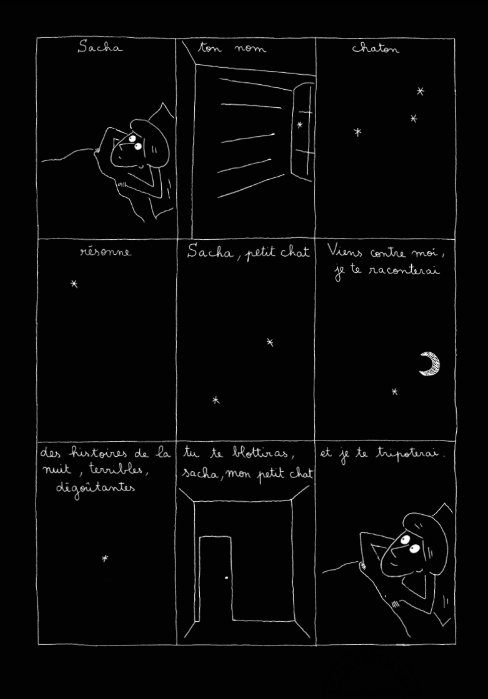 Sacha
ton nom
chaton
résonne
Sacha, petit chat
Viens contre moi,
je te raconterai
des histoires de la
nuit, terribles,
dégoûtantes
tu te blottiras,
sacha, mon petit chat
et je te tripoterai.